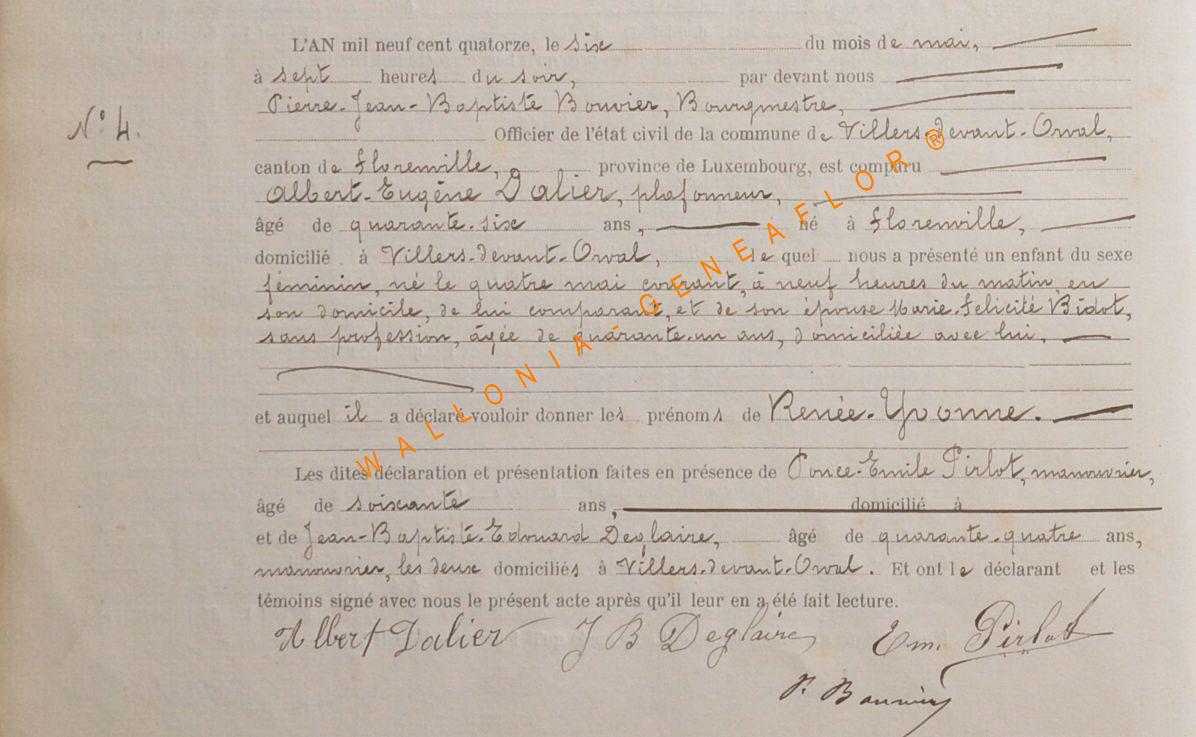 L'AN mil neuf cent quatorze, le six du mois de mai,
à sept heures du soir, par devant nous
Pierre-Jean-Baptiste Bouvier, Bourgmestre,
N° 4.
Officier de l'état civil de la commune de Villers-devant-Orval,
canton de Florenville, province de Luxembourg, est comparu
Albert-Eugène Dalier, plafonneur,
âgé de quarante-six ans, né à Florenville,
domicilié à Villers-devant-Orval, le quel nous a présenté un enfant du sexe
féminin, né le quatre mai courant, à neuf heures du matin, en
son domicile, de lui comparant, et de son épouse Marie-Felicité Bidot,
sans profession, âgée de quarante-un ans, domiciliée avec lui,
et auquel il a déclaré vouloir donner les prénoms de Renée-Yvonne.
Les dites déclaration et présentation faites en présence de Ponce-Emile Pirlot, manouvrier,
âgé de soixante ans, domicilié à
et de Jean-Baptiste-Edouard Deglaire, âgé de quarante-quatre ans,
manouvrier, les deux domiciliés à Villers-devant-Orval. Et ont le déclarant et les
témoins signé avec nous le présent acte après qu'il leur en a été fait lecture.
Albert Dalier J B Deglaire Em. Pirlot
P. Bouvier
WALLONIA - GENEAFLOR ®